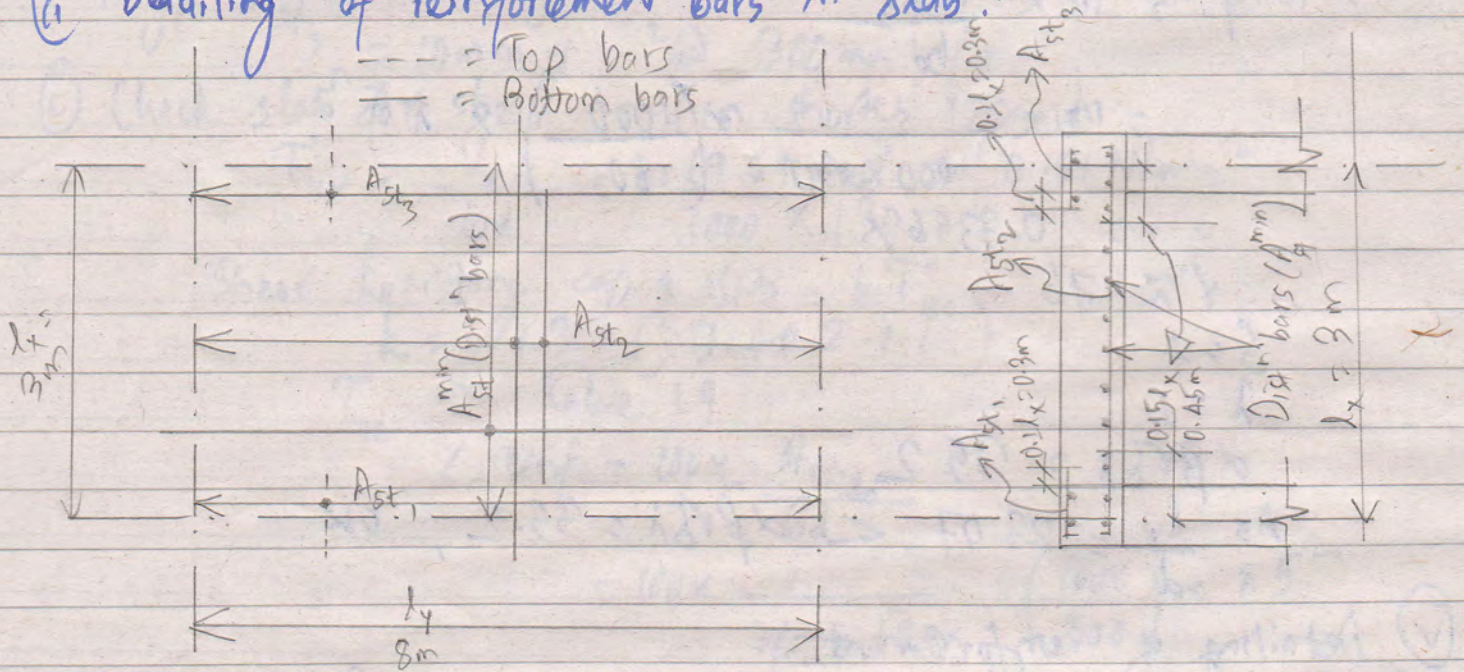 Detailing of reinforcement bars in slab.
--- = Top bars
— = Bottom bars
Ast3
Ast2
Ast min (Distn bars)
Ast1
lx =
3m
ly
8m
0.1lx=0.3m
Ast3
Ast2
Ast1
0.1lx=0.3m
0.15lx
0.45m
Distn bars (Ast min)
lx = 3m